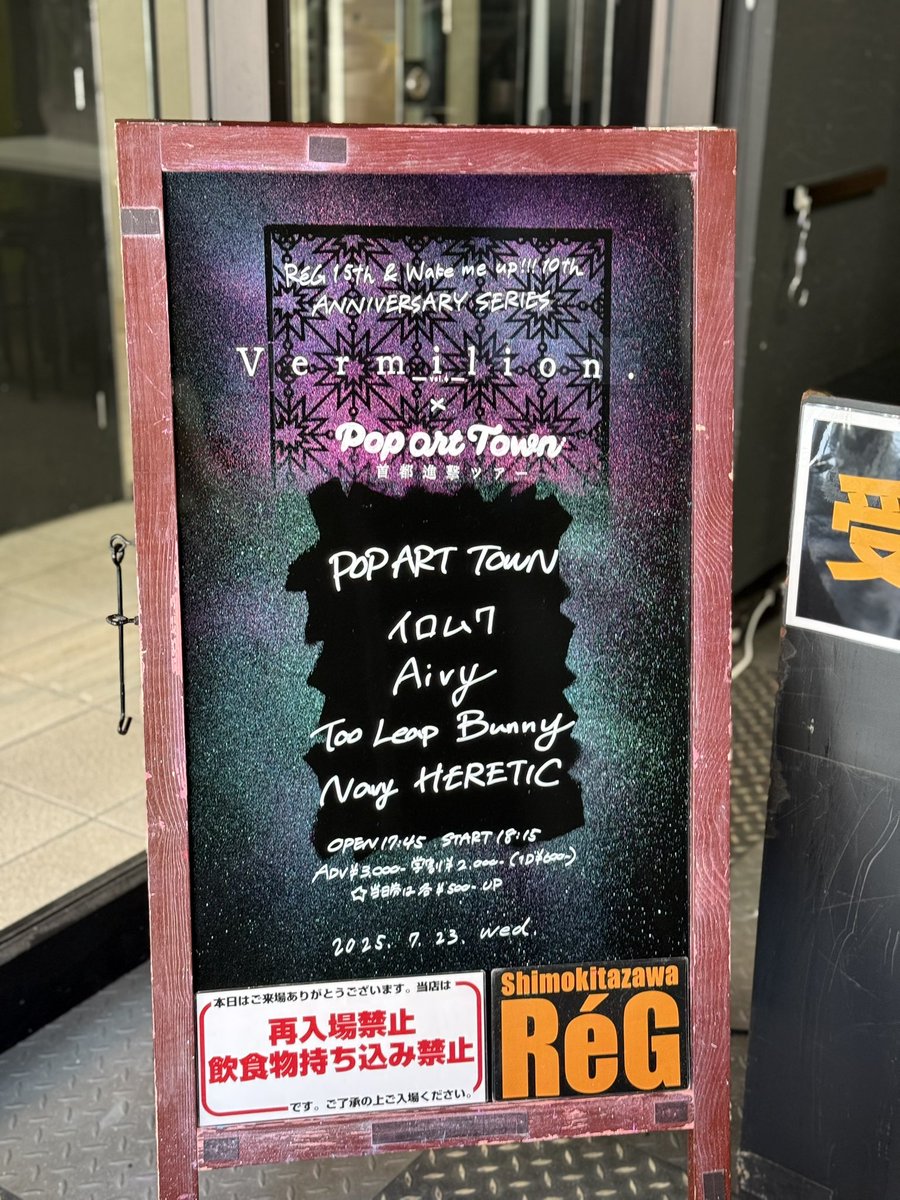 RéG 15th & Wake me up!!! 10th
ANNIVERSARY SERIES
Verm_i_lion.
×
Pop art Town
首都進撃ツアー
POP ART TOWN
イロムク
Airy
Too Leap Bunny
Navy HERETIC
OPEN 17:45 START 18:15
ADV¥3.000- 学割¥2.000- (1D¥600-)
☆当日券は各¥500- UP
2025. 7. 23. wed.
本日はご来場ありがとうございます。当店は
再入場禁止
飲食物持ち込み禁止
です。ご了承の上ご入場ください。
Shimokitazawa
RéG
受